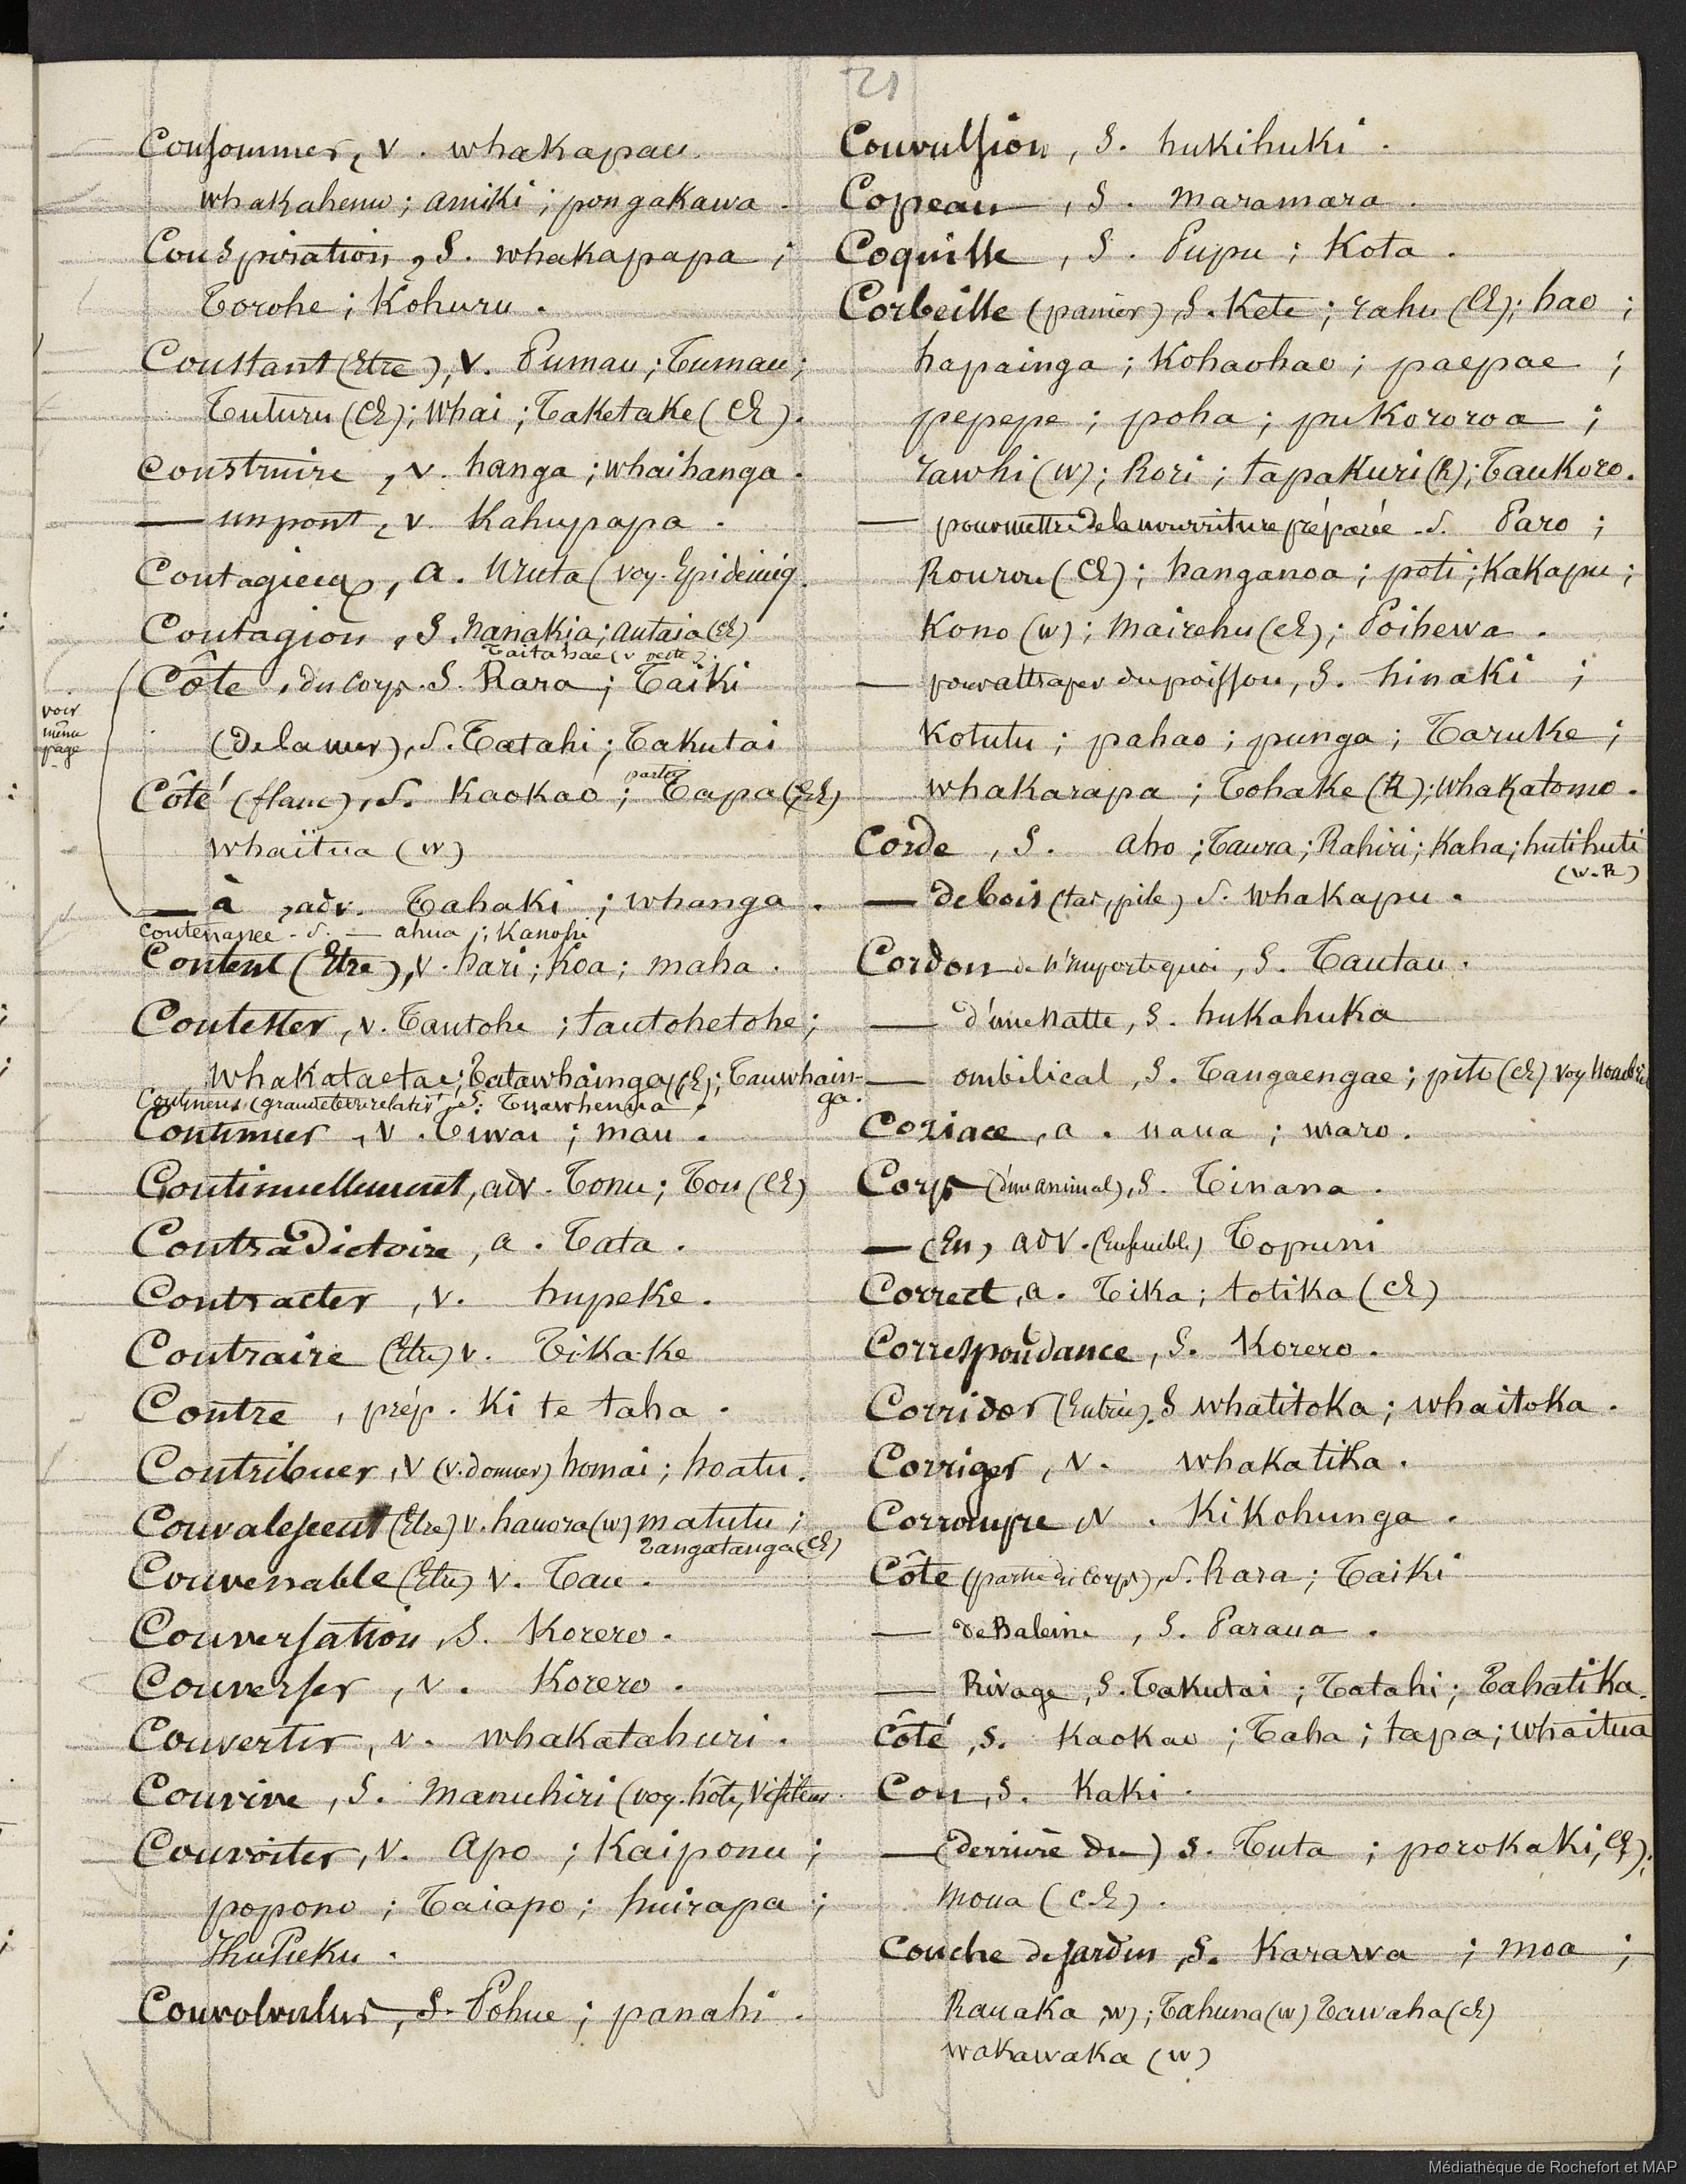 21
Consommer, v. whakapau.
whakahemo; amiki; pongakawa.
Conspiration, s. whakapapa;
Torohe; Kohuru.
Constant (Etre), v. Pumau; Tumau;
Tuturu (Ch); whai; Taketake (Ch).
Construire, v. hanga; whaihanga.
— un pont, v. Kahupapa.
Contagieux, a. Uruta (voy. Epidémiq.
Contagion, s. nanakia; autaia (Ch)
Taitahae (v
Côte, du corps. s. Rara; Taiki
voir
même
page
(de la mer), s. Tatahi; Takutai
Côté (flanc), s. Kaokao; Tapa (Ch)
whaïtua (w)
— à, adv. Tahaki; whanga.
Contenance. s. — ahua; Kanohi
Content (Etre), v. hari; Koa; maha.
Contester, v. Tautohe; tautohetohe;
whakataetae; Tatawhainga (Ch); Tauwhain-
ga.
Continent (grande terre relativt), s. Tuawhenua.
Continuer, v. Tiwai; mau.
Continuellement, adv. Tonu; Tou (Ch)
Contradictoire, a. Tata.
Contracter, v. hupeke.
Contraire (Etre) v. Tikake
Contre, prép. Ki te taha.
Contribuer, v (v. donner) homai; hoatu.
Convalescent (Etre) v. hauora (w) matutu;
rangatanga (Ch)
Convenable (Etre) v. Tau.
Conversation, s. Korero.
Converser, v. Korero.
Convertir, v. whakatahuri.
Convive, s. Manuhiri (voy. hôte, Visiteur.
Convoiter, v. Apo; Kaiponu;
popono; Taiapo; huirapa;
Convolvulus, s. Pohue; panahi.
Convulsion, s. hukihuki.
Copeau, s. maramara.
Coquille, s. Pupu; Kota.
Corbeille (panier), s. Kete; rahu (Ch); hao;
hapainga; Kohaohao; paepae;
pepepe; poha; pukororoa;
rawhi (w); Rori; tapakuri (R); Taukoro.
— pour mettre de la nourriture préparée. s. Paro;
Rourou (Ch); hanganoa; poti; Kakapu;
Kono (w); Mairehu (Ch); Poihewa.
— pour attraper du poisson, s. hinaki;
Kotutu; pahao; punga; Taruke;
whakarapa; Tohake (R); whakatomo.
Corde, s. aho; Taura; Rahiri; Kaha; hutihuti
(w. R)
— de bois (tas, pile) s. whakapu.
Cordon de n'importe quoi, s. Tautau.
— d'une natte, s. hukahuka
— ombilical, s. Tangaengae; pito (Ch) voy Nombril
Coriace, a. uaua; maro.
Corps (d'un animal), s. Tinana.
— (En) adv. (Ensemble) Topuni
Correct, a. Tika; totika (Ch)
Correspondance, s. Korero.
Corridor (Entrée), s whatitoka; whaitoka.
Corriger, v. whakatika.
Corrompre, v. Kikohunga.
Côte (partie du corps), s. Rara; Taiki
— de Baleine, s. Paraua.
— Rivage, s. Takutai; Tatahi; Tahatika.
Côté, s. Kaokao; Taha; tapa; whaitua
Cou, s. Kaki.
— (derrière du) s. Tuta; porokaki, Ch);
moua (Ch).
Couche de jardin, s. Karawa; moa;
Rauaka, w); Tahuna (w) Tawaha (Ch)
wakawaka (w)
Médiathèque de Rochefort et MAP